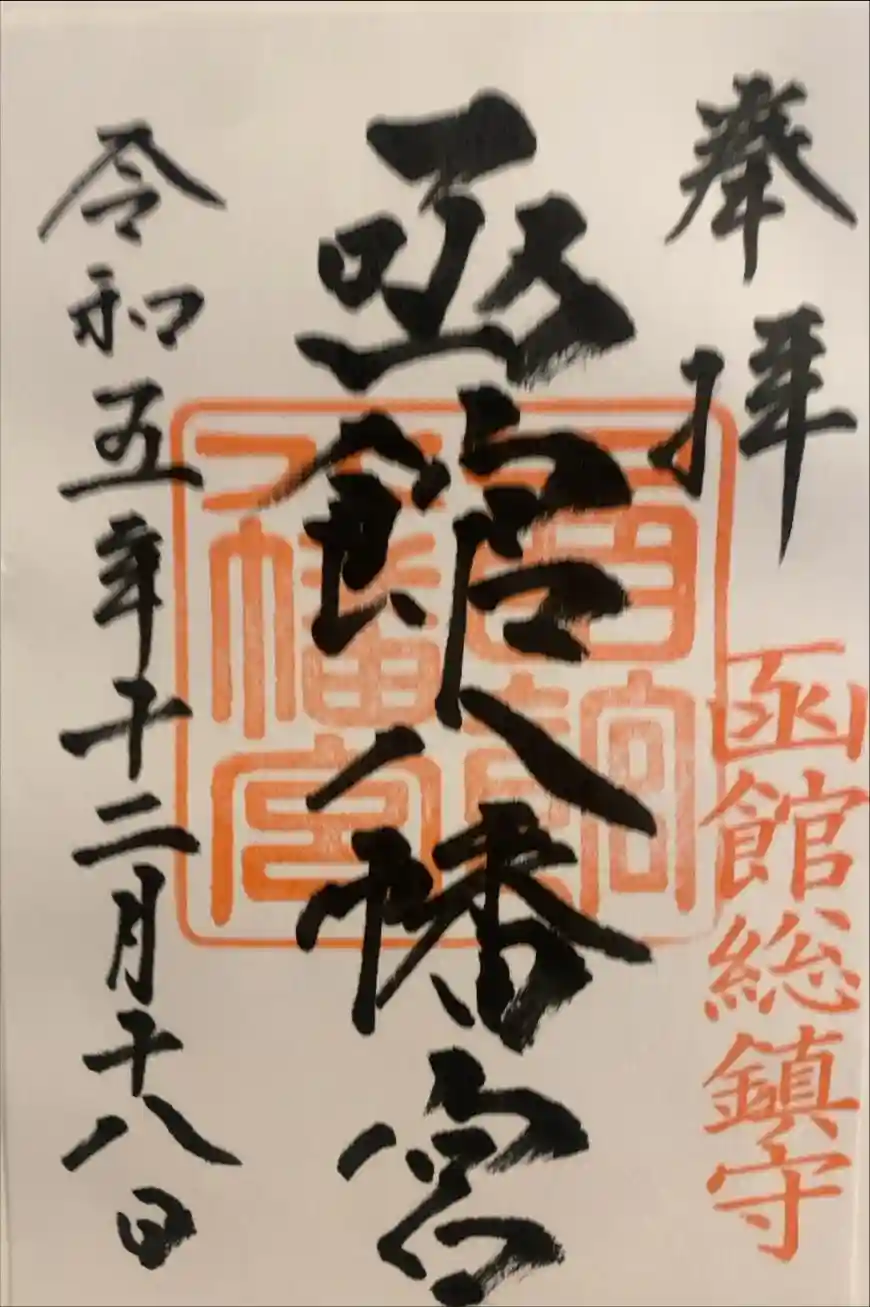 奉拝
函館総鎮守
函館八幡宮
令和五年十二月十八日